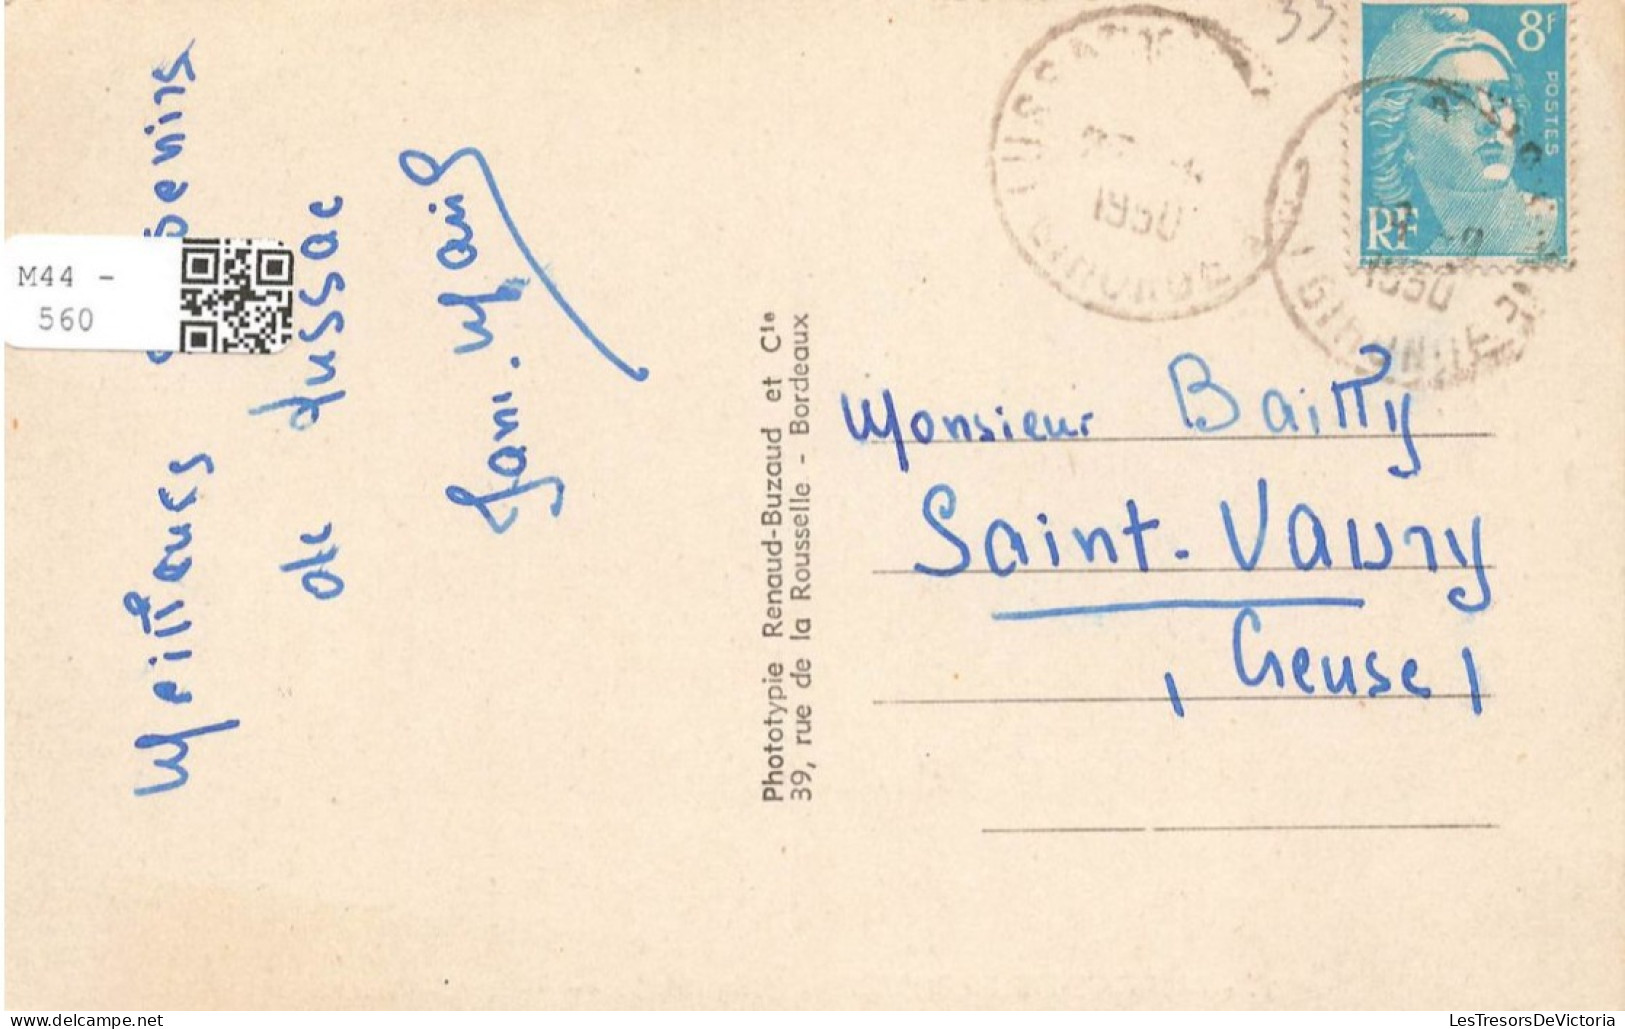 Meilleurs
de Lussac
M44 -
560
Phototypie Renaud-Buzaud et Cie
39, rue de la Rousselle - Bordeaux
33
8F
POSTES
RF
LUSSAC
1950
GIRONDE
1950
GIRONDE
Monsieur Bailly
Saint-Vaury
(Creuse)
LesTresorsDeVictoria